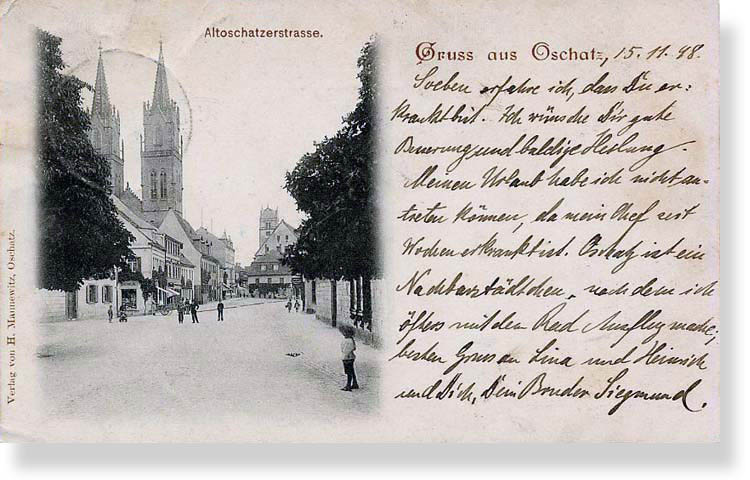 Altoschatzerstrasse.
Gruss aus Oschatz, 15.11.98.
Soeben erfahre ich, dass Du er=
krankt bist. Ich wünsche Dir gute
Besserung und baldige Heilung
Meinen Urlaub habe ich nicht an-
treten können, da mein Chef seit
Wochen erkrankt ist. Oschatz ist ein
Nachbarstädtchen, nach dem ich
öfters mit dem Rad Ausflug mache,
besten Gruss an Lina und Heinrich
und Dich, Dein Bruder Siegmund.
Verlag von H. Mannewitz, Oschatz.